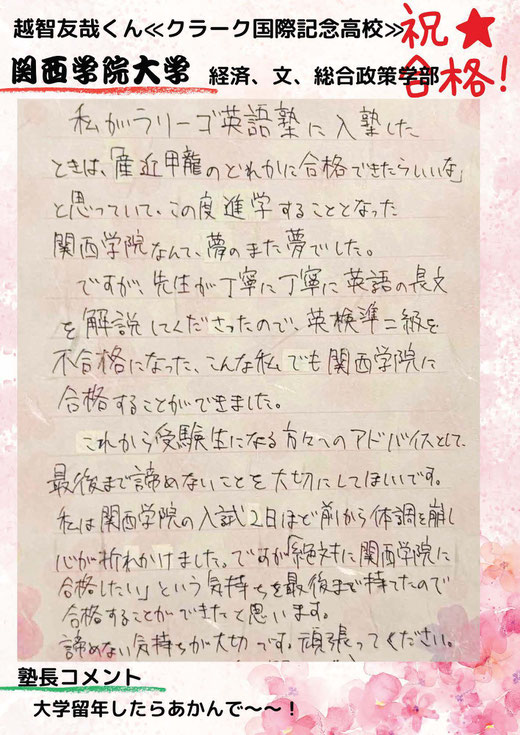 越智友哉くん≪クラーク国際記念高校≫
祝★
合格!
関西学院大学 経済、文、総合政策学部
私がフリーゴ英語塾に入塾した
ときは、「産近甲龍のどれかに合格できたらいいな」
と思っていて、この度進学することとなった
関西学院なんて、夢のまた夢でした。
ですが、先生が丁寧に丁寧に英語の長文
を解説してくださったので、英検準二級を
不合格になった、こんな私でも関西学院に
合格することができました。
これから受験生になる方々へのアドバイスとして、
最後まで諦めないことを大切にしてほしいです。
私は関西学院の入試2日ほど前から体調を崩し
心が折れかけました。ですが「絶対に関西学院に
合格したい」という気持ちを最後まで持てたので
合格することができたと思います。
諦めない気持ちが大切です。頑張ってください。
塾長コメント
大学留年したらあかんで～～！